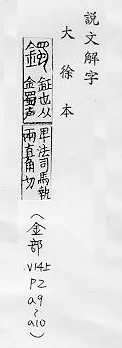 說文解字
大徐本
鐲
鉦也从
金蜀聲
軍法司馬執
鐲直角切
(金部
V14上
P2
a9
~
a10)